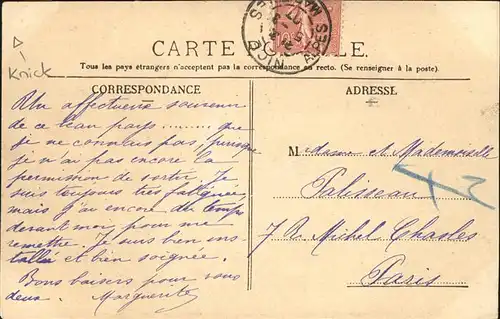 CARTE POSTALE.
Tous les pays étrangers n'acceptent pas la correspondance au recto. (Se renseigner à la poste).
Knick
CORRESPONDANCE
Un affectueux souvenir
de ce beau pays ......... que
je ne connais pas, puisque
je n'ai pas encore la
permission de sortir. Je
suis toujours très fatiguée
mais j'ai encore du temps
devant moi pour me
remettre. Je suis bien ins-
tallée et bien soignée.
Bons baisers pour vous
deux. Marguerite
ADRESSE
Madame et Mademoiselle
Palisseau
7 R. Michel Chasles
Paris